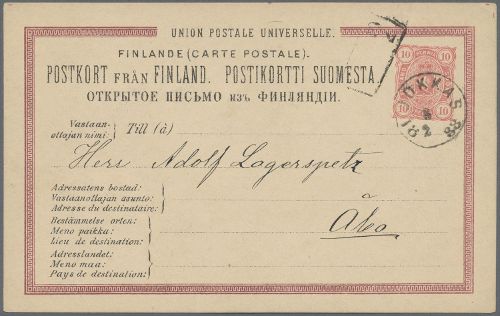 UNION POSTALE UNIVERSELLE.
FINLANDE (CARTE POSTALE).
POSTKORT FRÅN FINLAND. POSTIKORTTI SUOMESTA.
ОТКРЫТОЕ ПИСЬМО изъ ФИНЛЯНДІИ.
10 10
10 10
Vastaan-
ottajan nimi: Till (à)
Herr Adolf Lagerspetz
à
Åbo
Adressatens bostad:
Vastaanottajan asunto:
Adresse du destinataire:
Bestämmelse orten:
Meno paikka:
Lieu de destination:
Adresslandet:
Meno maa:
Pays de destination: